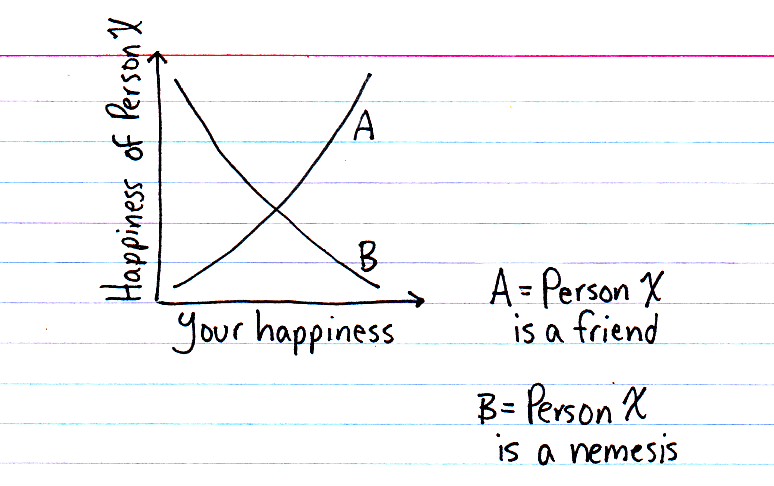 Happiness of Person X
A
B
your happiness
A = Person X
is a friend
B = Person X
is a nemesis